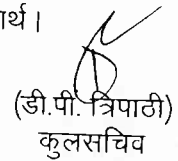 र्थ।
(डी.पी. त्रिपाठी)
कुलसचिव